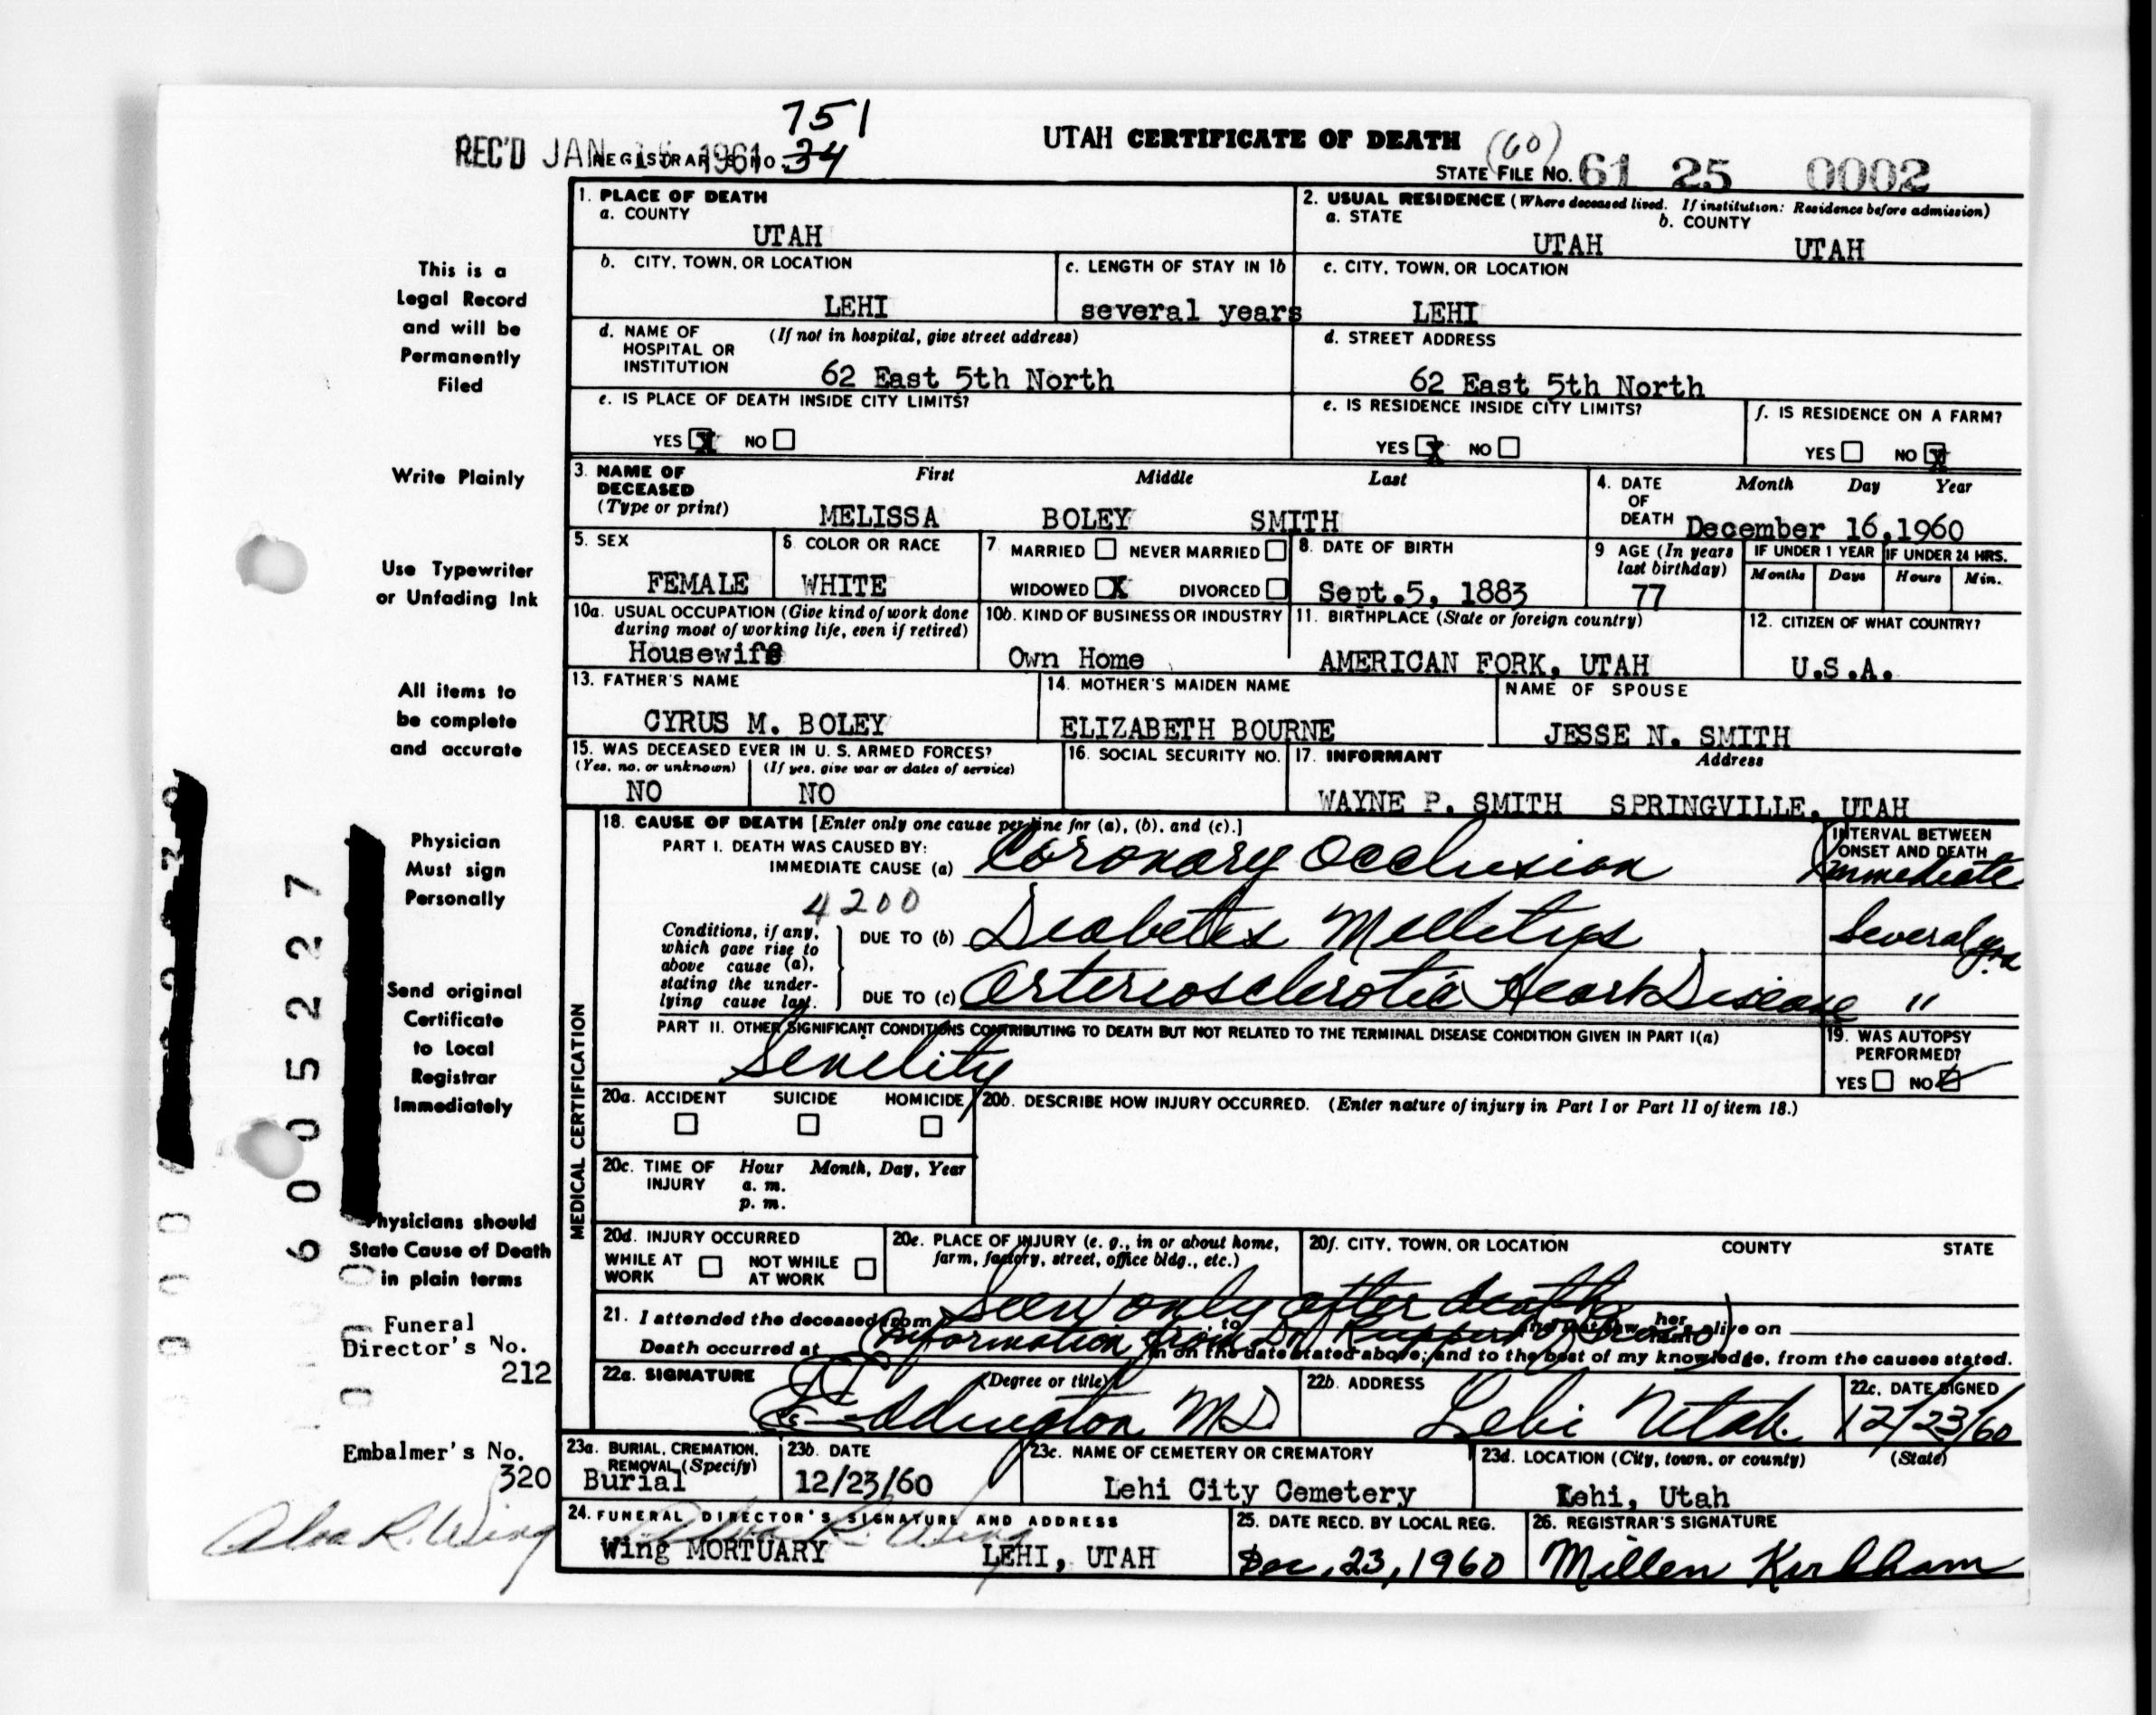 751
REC'D JAN 1961 REGISTRAR'S NO. 34
UTAH CERTIFICATE OF DEATH (60)
STATE FILE No. 61 25 0002
This is a
Legal Record
and will be
Permanently
Filed
Write Plainly
Use Typewriter
or Unfading Ink
All items to
be complete
and accurate
Physician
Must sign
Personally
Send original
Certificate
to Local
Registrar
Immediately
Physicians should
State Cause of Death
in plain terms
Funeral
Director's No.
212
Embalmer's No.
320
Alva R. Wing
1. PLACE OF DEATH
a. COUNTY
UTAH
2. USUAL RESIDENCE (Where deceased lived. If institution: Residence before admission)
a. STATE b. COUNTY
UTAH UTAH
b. CITY, TOWN, OR LOCATION
LEHI
c. LENGTH OF STAY IN 1b
several years
c. CITY, TOWN, OR LOCATION
LEHI
d. NAME OF (If not in hospital, give street address)
HOSPITAL OR
INSTITUTION
62 East 5th North
d. STREET ADDRESS
62 East 5th North
e. IS PLACE OF DEATH INSIDE CITY LIMITS?
YES X NO
e. IS RESIDENCE INSIDE CITY LIMITS?
YES X NO
f. IS RESIDENCE ON A FARM?
YES NO X
3. NAME OF First Middle Last
DECEASED
(Type or print)
MELISSA BOLEY SMITH
4. DATE Month Day Year
OF
DEATH December 16,1960
5. SEX
FEMALE
6. COLOR OR RACE
WHITE
7 MARRIED NEVER MARRIED
WIDOWED X DIVORCED
8. DATE OF BIRTH
Sept.5, 1883
9 AGE (In years
last birthday)
77
IF UNDER 1 YEAR IF UNDER 24 HRS.
Months Days Hours Min.
10a. USUAL OCCUPATION (Give kind of work done
during most of working life, even if retired)
Housewife
10b. KIND OF BUSINESS OR INDUSTRY
Own Home
11. BIRTHPLACE (State or foreign country)
AMERICAN FORK, UTAH
12. CITIZEN OF WHAT COUNTRY?
U.S.A.
13. FATHER'S NAME
CYRUS M. BOLEY
14. MOTHER'S MAIDEN NAME
ELIZABETH BOURNE
NAME OF SPOUSE
JESSE N. SMITH
15. WAS DECEASED EVER IN U. S. ARMED FORCES?
(Yes, no, or unknown) (If yes, give war or dates of service)
NO NO
16. SOCIAL SECURITY NO.
17. INFORMANT Address
WAYNE P. SMITH SPRINGVILLE, UTAH
MEDICAL CERTIFICATION
18. CAUSE OF DEATH [Enter only one cause per line for (a), (b), and (c).]
PART I. DEATH WAS CAUSED BY:
IMMEDIATE CAUSE (a) Coronary Occlusion
INTERVAL BETWEEN
ONSET AND DEATH
Immediate
4200
Conditions, if any,
which gave rise to
above cause (a),
stating the under-
lying cause last.
DUE TO (b) Diabetes Mellitus Several yrs
DUE TO (c) Arteriosclerotic Heart Disease "
PART II. OTHER SIGNIFICANT CONDITIONS CONTRIBUTING TO DEATH BUT NOT RELATED TO THE TERMINAL DISEASE CONDITION GIVEN IN PART I(a)
Senelity
19. WAS AUTOPSY
PERFORMED?
YES NO
20a. ACCIDENT SUICIDE HOMICIDE
20b. DESCRIBE HOW INJURY OCCURRED. (Enter nature of injury in Part I or Part II of item 18.)
20c. TIME OF Hour Month, Day, Year
INJURY a. m.
p. m.
20d. INJURY OCCURRED
WHILE AT NOT WHILE
WORK AT WORK
20e. PLACE OF INJURY (e. g., in or about home,
farm, factory, street, office bldg., etc.)
20f. CITY, TOWN, OR LOCATION COUNTY STATE
Seen only after death
21. I attended the deceased from to her alive on
(Information from Dr
Death occurred at m on the date stated above; and to the best of my knowledge, from the causes stated.
22a. SIGNATURE (Degree or title)
Eddington MD
22b. ADDRESS
Lehi Utah
22c. DATE SIGNED
12/23/60
23a. BURIAL, CREMATION,
REMOVAL (Specify)
Burial
23b. DATE
12/23/60
23c. NAME OF CEMETERY OR CREMATORY
Lehi City Cemetery
23d. LOCATION (City, town, or county) (State)
Lehi, Utah
24. FUNERAL DIRECTOR'S SIGNATURE AND ADDRESS
Alva R. Wing
Wing MORTUARY LEHI, UTAH
25. DATE RECD. BY LOCAL REG.
Dec. 23, 1960
26. REGISTRAR'S SIGNATURE
Millen Kirkham